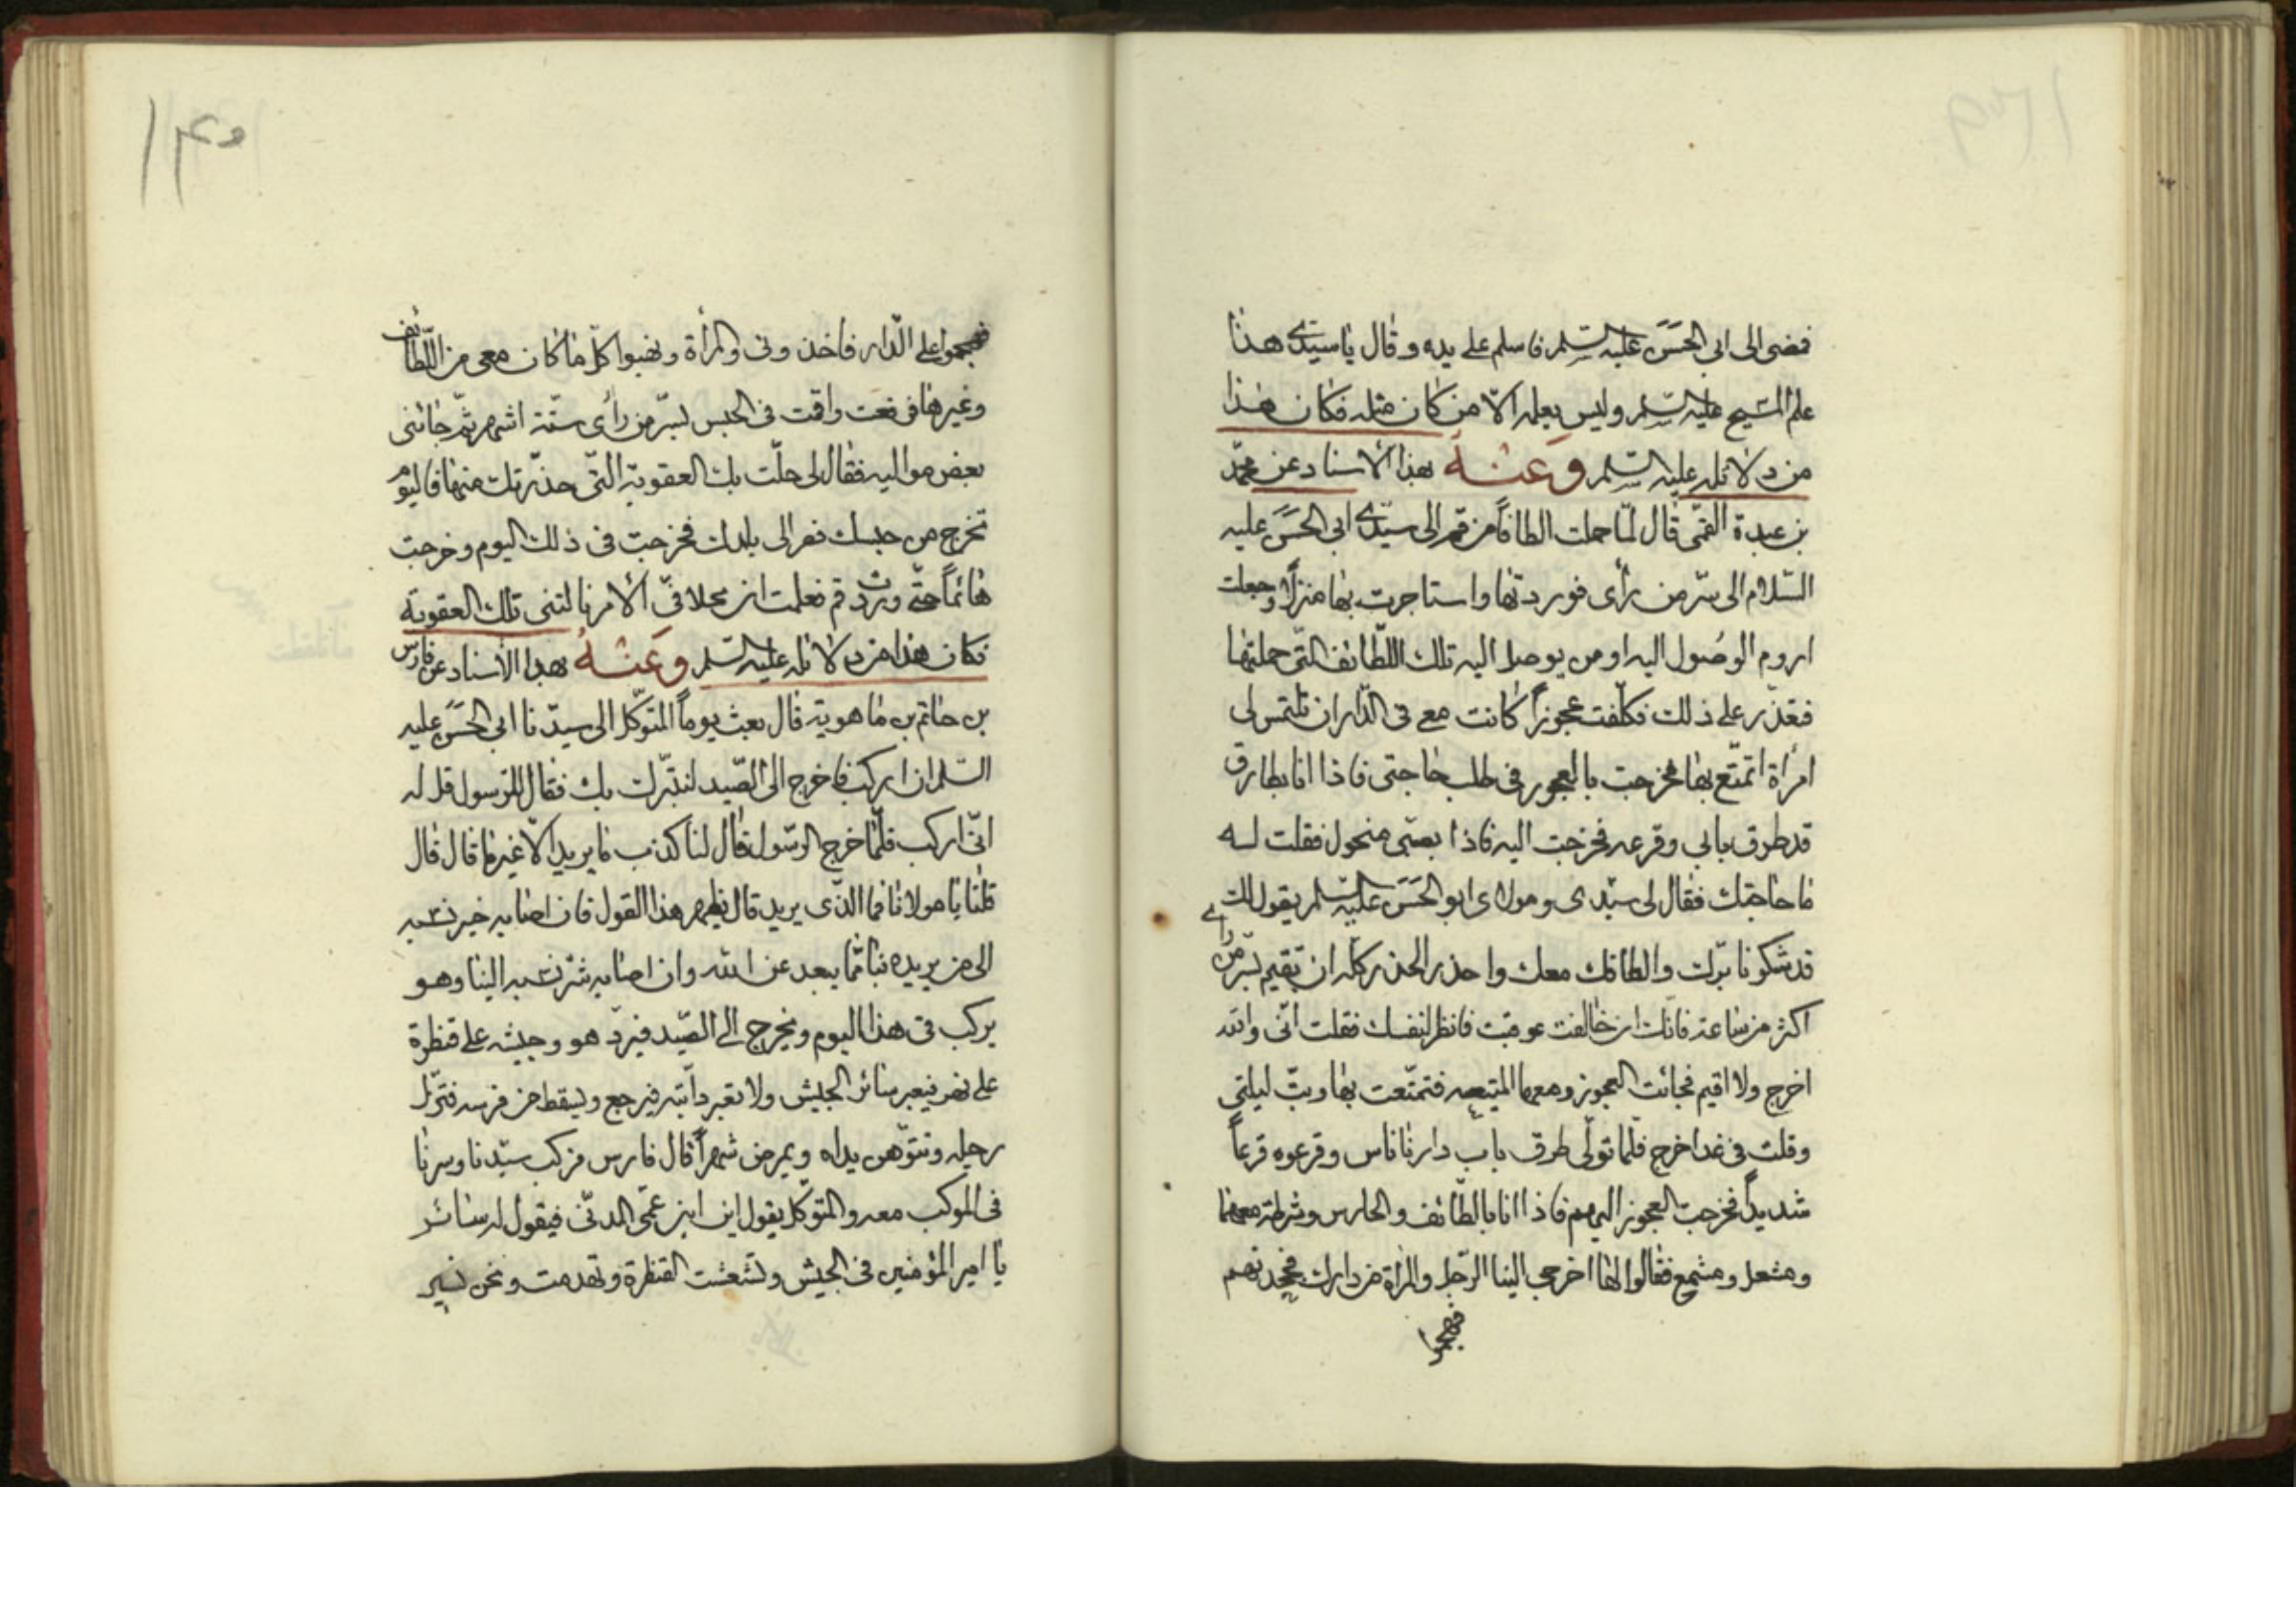 فمضى الى ابى الحسن عليه السلم فاسلم على يده و قال يا سيدى هذا
علم المسيح عليه السلم وليس يعلمه الّا من كان مثله فكان هذا
من دلائله عليه السلم وَعَنْهُ بهذا الأسناد عن محمّد
بن عبدة القمّى قال لمّا حملت الطافاً من قم الى سيّدى ابى الحسن عليه
السّلام الى سرّ من رأى فوردتها واستاجرت بها منزلًا وجعلت
اروم الوصُول اليه او من يوصل اليه تلك اللّطائف الّتى حملتها
فتعذّر على ذلك فكلّفت عجوزاً كانت معى فى الدّار ان تلتمس لى
امرأة اتمتّع بها فخرجت بالعجوز فى طلب حاجتى فاذا انا بطارق
قد طرق بابى وقرعه فخرجت اليه فاذا بصبى منحول فقلت له
ما حاجتك فقال لى سيّدى و مولاى ابو الحَسَن عليه السّلم يقول لك
قد شكرنا برّك والطافك معك واحذر الحذر كله ان تقيم بسرّ من راى
اكثر من ساعة فانّك ان خالفت عوقبت فانظر لنفسك فقلت انّى والله
اخرج ولا اقيم فجائت العجوز ومعها المتيعه فتمتّعت بها وبتّ ليلتى
وقلت فى غد اخرج فلمّا تولّى طرق باب دارنا ناس وقرعوه قرعاً
شديداً فخرجت العجوز اليهم فاذا انا بالطّائف والحارس وشرطة معهما
ومشعل ومشمع فقالوا لها اخرجى الينا الرّجل والمرأة من دارك فجحدتهم
فهجموا
١٣٥
فهجموا على الدّار فاخذونى والمرأة ونهبوا كلّ ما كان معى من اللّطائف
وغيرها فرفعت واقمت فى الحبس بسرّ من رأى ستّة اشهر ثمّ جائنى
بعض مواليه فقال لى حلّت بك العقوبة الّتى حذّرتك منها فاليوم
تخرج من حبسك فصر الى بلدك فخرجت فى ذلك اليوم وخرجت
هائماً حتّى وردت قم فعلمت ان بخلافى الأمر نالتنى تلك العقوبة
فكان هذا من دلائله عليه السّلم وَعَنْهُ بهذا الأسناد عن فارس
بن حاتم بن ماهوية قال بعث يوماً المتوكّل الى سيّدنا ابى الحسَن عليه
السّلم ان اركب فاخرج الى الصّيد لنتبرّك بك فقال للرّسول قل له
انّى اركب فلمّا خرج الرّسول قال لنا كذب ما يريد الّا غير ما قال قال
قلنا يا مولانا فما الّذى يريد قال يظهر هذا القول فان اصابه خير نسبه
الى من يريده بنا ممّا يبعد عن الله وان اصابه شرّ نسبه الينا وهو
يركب فى هذا اليوم ويخرج الى الصّيد فيرد هو وجيشه على قنطرة
على نهر فيعبر سائر الجيش ولا تعبر دابّته فيرجع ويسقط من فرسه فتزل
رجله وتتوهن يداه ويمرض شهراً قال فارس فركب سيّدنا وسرنا
فى الموكب معه والمتوكّل يقول اين ابن عمّى المدنّى فيقول له سائر
يا امير المؤمنين فى الجيش وتشعثت القنطرة وتهدمت ونحن نسير